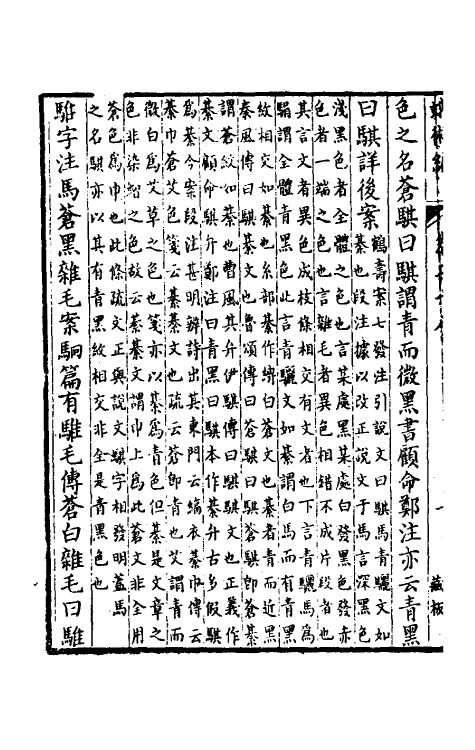 色之名蒼騏曰騏謂青而微黑書顧命鄭注亦云青黑
曰騏詳後案
鶴壽案七發注引說文曰騏馬青驪文如
綦也段注據以改正說文于馬言深黑色
淺黑色者全體之色也言某處黑某處白發黑色發赤
色者一端之色也言雜毛者異色相錯不成片段者也
其言文者異色成枝條相交有文者也下言青驪馬為
駽謂全體青黑色此言青驪文如綦謂白馬而有青黑
紋相交如綦也糸部綦作綥白蒼文也綦者青而近黑
秦風傳曰騏綦文也魯頌傳曰蒼騏曰騏蒼騏卽蒼綦
謂蒼紋如綦也曹風其弁伊騏傳曰騏騏文也正義作
綦文顧命騏弁鄭注曰青黑曰騏本作綦弁古多假騏
為綦今案段注甚明辨詩出其東門云縞衣綦巾傳云
綦巾蒼艾色箋云綦綦文也疏云蒼卽青也艾謂青而
微白為艾草之色也箋亦以綦為青色但綦是文章之
色非染繒之色故云綦綦文謂巾上為此蒼文非全用
蒼色為巾也此條疏文正與說文騏字相發明蓋馬
之名騏亦以其有青黑紋相交非全是青黑色也
騅字注馬蒼黑雜毛案駉篇有騅毛傳蒼白雜毛曰騅
藏板